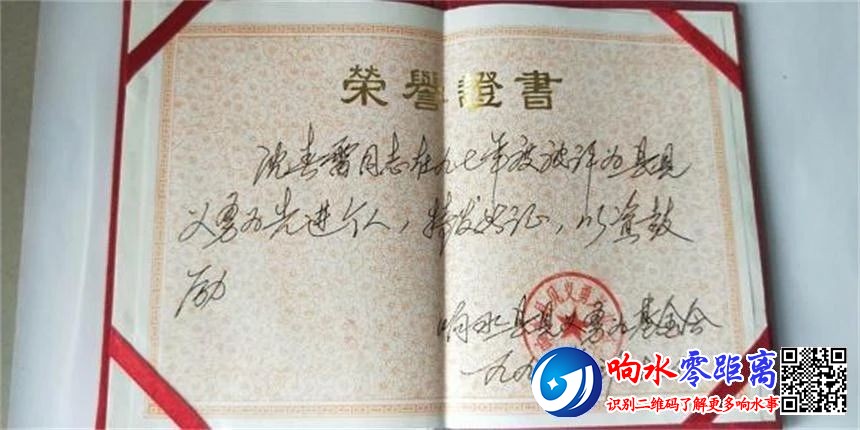 榮譽證書
沈春雷同志在九七年被评为县见
义勇为先进个人，特发此证，以资鼓
励
响水县见义勇为基金会
一九九
响水零距离
识别二维码了解更多响水事